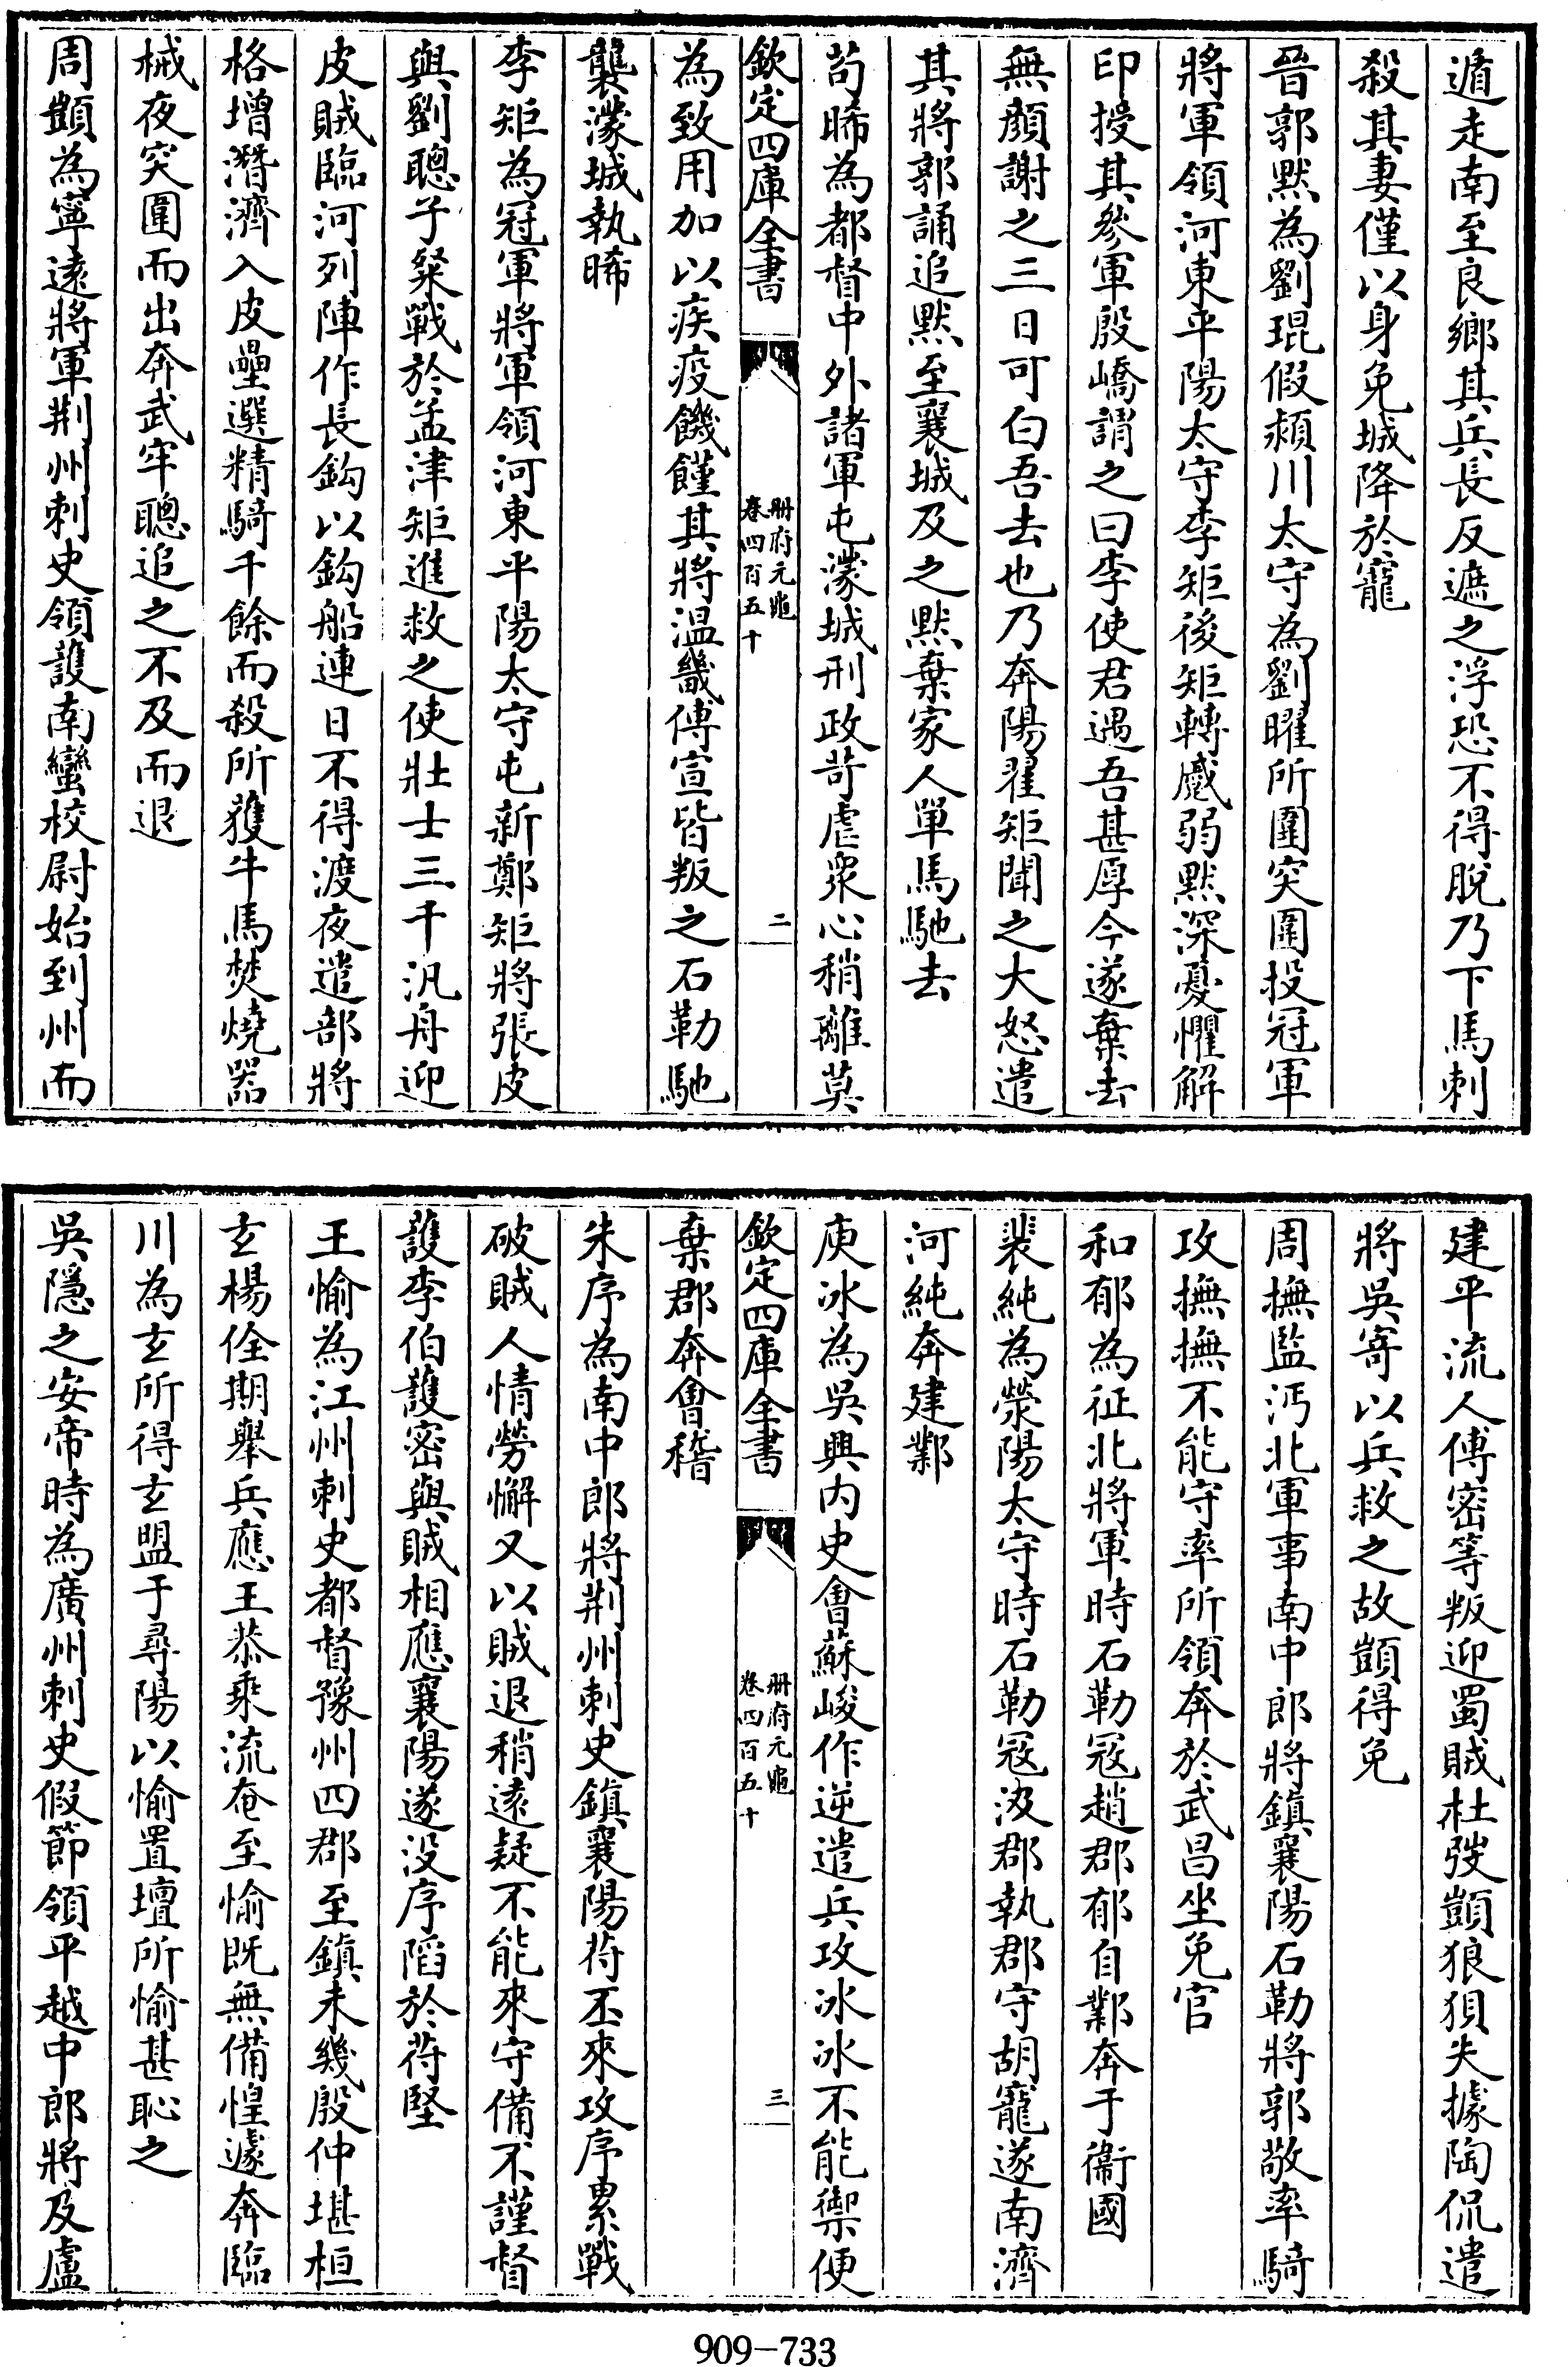 遁走南至良鄉其兵長反遮之浮恐不得脫乃下馬刺
殺其妻僅以身免城降於寵
晉郭黙為劉琨假潁川太守為劉曜所圍突圍投冠軍
將軍領河東平陽太守李矩後矩轉蹙弱黙深憂懼解
印授其參軍殷嶠謂之曰李使君遇吾甚厚今遂棄去
無顔謝之三日可白吾去也乃奔陽翟矩聞之大怒遣
其將郭誦追黙至襄城及之黙棄家人單馬馳去
茍晞為都督中外諸軍屯濛城刑政苛虐衆心稍離莫
欽定四庫全書
冊府元龜
卷四百五十
二
為致用加以疾疫饑饉其將温畿傅宣皆叛之石勒馳
襲濛城執晞
李矩為冠軍將軍領河東平陽太守屯新鄭矩將張皮
與劉聰子粲戰於孟津矩進救之使壯士三千汎舟迎
皮賊臨河列陣作長鈎以鈎船連日不得渡夜遣部將
格增潛濟入皮壘選精騎千餘而殺所獲牛馬焚燒器
械夜突圍而出奔武牢聰追之不及而退
周顗為寧遠將軍荆州刺史領護南蠻校尉始到州而
建平流人傅密等叛迎蜀賊杜弢顗狼狽失據陶侃遣
將吳寄以兵救之故顗得免
周撫監沔北軍事南中郎將鎮襄陽石勒將郭敬率騎
攻撫撫不能守率所領奔於武昌坐免官
和郁為征北將軍時石勒冦趙郡郁自鄴奔于衞國
裴純為滎陽太守時石勒冦汲郡執郡守胡寵遂南濟
河純奔建鄴
庾冰為吳興内史會蘇峻作逆遣兵攻冰冰不能禦便
欽定四庫全書
冊府元龜
卷四百五十
三
棄郡奔會稽
朱序為南中郎將荆州刺史鎮襄陽苻丕來攻序累戰
破賊人情勞懈又以賊退稍遠疑不能來守備不謹督
護李伯護密與賊相應襄陽遂没序陷於苻堅
王愉為江州刺史都督豫州四郡至鎮未幾殷仲堪桓
玄楊佺期舉兵應王恭乘流奄至愉既無備惶遽奔臨
川為玄所得玄盟于尋陽以愉置壇所愉甚恥之
吳隱之安帝時為廣州刺史假節領平越中郎將及盧
909-733